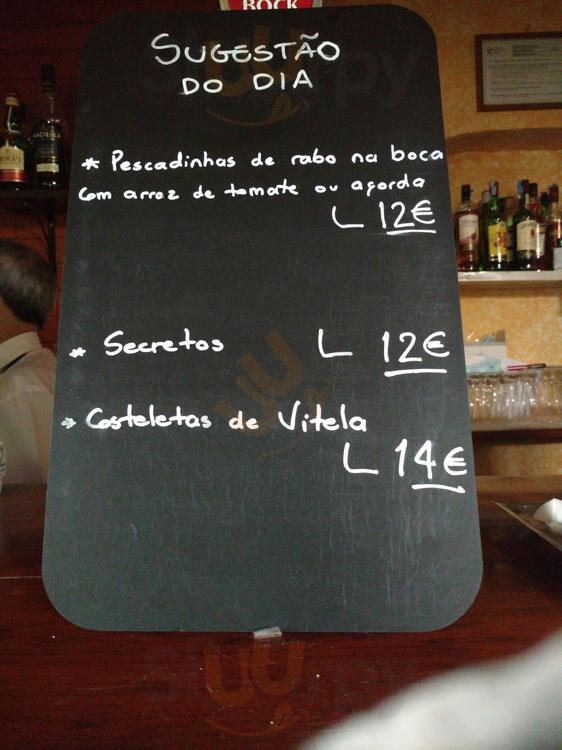 BOCK
SUGESTÃO
DO DIA
* Pescadinhas de rabo na boca
com arroz de tomate ou açorda
12€
* Secretos 12€
* Costeletas de Vitela
14€